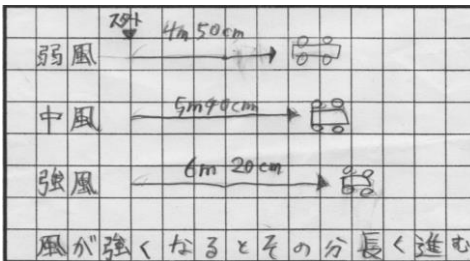 スタート
4m 50cm
弱風
5m40cm
中風
6m 20cm
強風
風が強くなるとその分長く進む